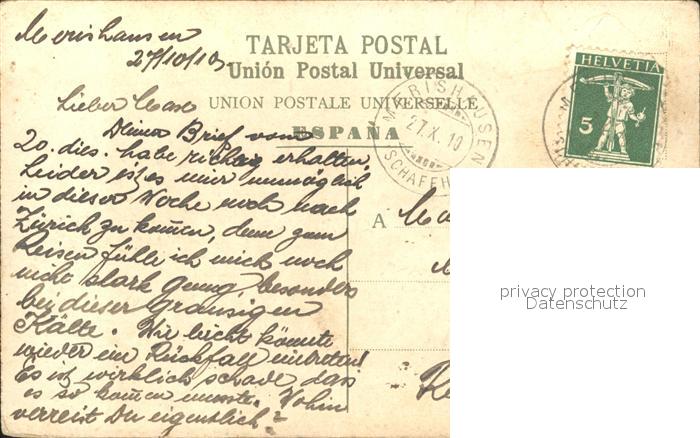 Merishausen
27/10/10.
TARJETA POSTAL
Unión Postal Universal
UNION POSTALE UNIVERSELLE
ESPAÑA
MERISHAUSEN
27.X.10
(SCHAFFH
HELVETIA
5
Lieber Max
Deinen Brief vom
20. dies. habe richtig erhalten,
Leider ist es mir unmöglich
in dieser Woche noch nach
Zürich zu kommen, denn zum
Reisen fühle ich mich noch
nicht stark genug, besonders
bei dieser grausigen
Kälte. Wie leicht könnte
wieder ein Rückfall eintreten!
Es ist wirklich schade, dass
es so kommen musste. Wohin
verreist Du eigentlich?
A
privacy protection
Datenschutz